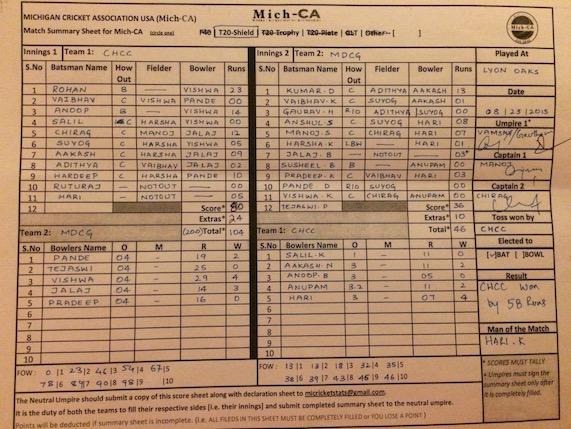 MICHIGAN CRICKET ASSOCIATION USA (Mich-CA)
Mich-CA
Match Summary Sheet for Mich-CA (circle one) F40 | T20-Shield | T20-Trophy | T20-Plate | CLT | Other- [ ]
Innings 1 Team 1: CHCC
S.No Batsman Name How Out Fielder Bowler Runs
1 ROHAN B — VISHWA 23
2 VAIBHAV C VISHWA PANDE 00
3 ANOOP B — VISHWA 14
4 SALIL C HARSHA VISHWA 00
5 CHIRAG C MANOJ JALAJ 12
6 SUYOG C HARSHA VISHWA 05
7 AAKASH C HARSHA JALAJ 09
8 ADITHYA C VAIBHAV JALAJ 02
9 HARDEEP C HARSHA PANDE 10
10 RUTURAJ — NOTOUT — 00
11 HARI — NOTOUT — 05
12 Score* 80
Extras* 24
Team 2: MDCG (20.0) Total* 104
S.No Bowlers Name O M R W
1 PANDE 04 — 19 2
2 TEJASWI 04 — 25 0
3 VISHWA 04 — 29 4
4 JALAJ 04 — 14 3
5 PRADEEP 04 — 16 0
6
7
8
9
10
FOW: 0|1 23|2 46|3 54|4 67|5
78|6 89|7 90|8 98|9 |10
Innings 2 Team 2: MDCG
S.No Batsman Name How Out Fielder Bowler Runs
1 KUMAR-D C ADITHYA AAKASH 13
2 VAIBHAV-K C SUYOG AAKASH 01
3 GAURAV-H R|O ADITHYA|SUYOG 00
4 ANSHUL S C SUYOG HARI 08
5 MANOJ.S C CHIRAG HARI 07
6 HARSHA-K LBW — HARI 01
7 JALAJ.B — NOTOUT — 03*
8 SUSHEEL B B — ANUPAM 00
9 PRADEEP-K C VAIBHAV HARI 03
10 PANDE D R|O SUYOG 00
11 VISHWA-K C CHIRAG ANUPAM 00
12 TEJASWI-P Score* 36
Extras* 10
Team 1: CHCC Total* 46
S.No Bowlers Name O M R W
1 SALIL-K 1 — 11 0
2 AAKASH-N 3 — 11 2
3 ANOOP.B 3 — 05 0
4 ANUPAM 3.2 — 11 2
5 HARI 3 — 07 4
6
7
8
9
10
FOW: 13|1 13|2 18|3 32|4 35|5
38|6 39|7 43|8 45|9 46|10
Played At
LYON OAKS
Date
08|23|2015
Umpire 1*
Captain 1
MANOJ
Captain 2
CHIRAG
Toss won by
CHCC
Elected to
[✓]BAT | [ ]BOWL
Result
CHCC Won
by 58 Runs
Man of the Match
HARI.K
* SCORES MUST TALLY
- Umpires must sign the summary sheet only after it is completely filled.
The Neutral Umpire should submit a copy of this score sheet along with declaration sheet to micricketstats@gmail.com.
It is duty of both the teams to fill their respective sides (i.e. their innings) and submit completed summary sheet to the neutral umpire.
Points will be deducted if summary sheet is incomplete. (i.e. ALL FILEDS IN THIS SHEET MUST BE COMPLETELY FILLED or YOU LOSE A POINT)